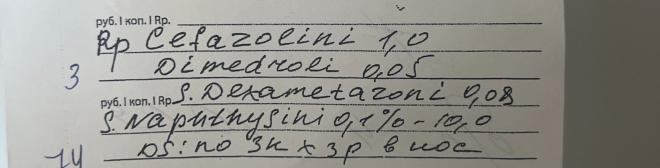 руб. | коп. | Rp.
Rp Cefazolini 1,0
Dimedroli 0,05
3
руб. | коп. | Rp. S. Dexametazoni 0,08
S. Naphthysini 0,1% - 10,0
DS: по 3к x 3р в нос
14